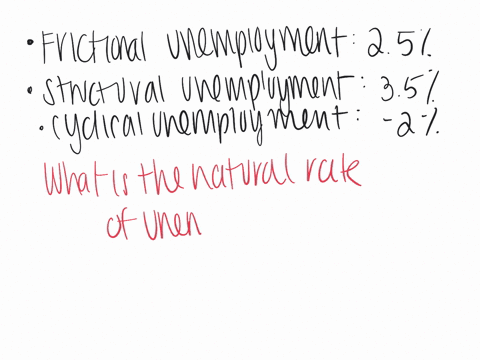 • Frictional unemployment: 2.5%
• Structural unemployment: 3.5%
• Cyclical unemployment: -2%
What is the natural rate
of unem